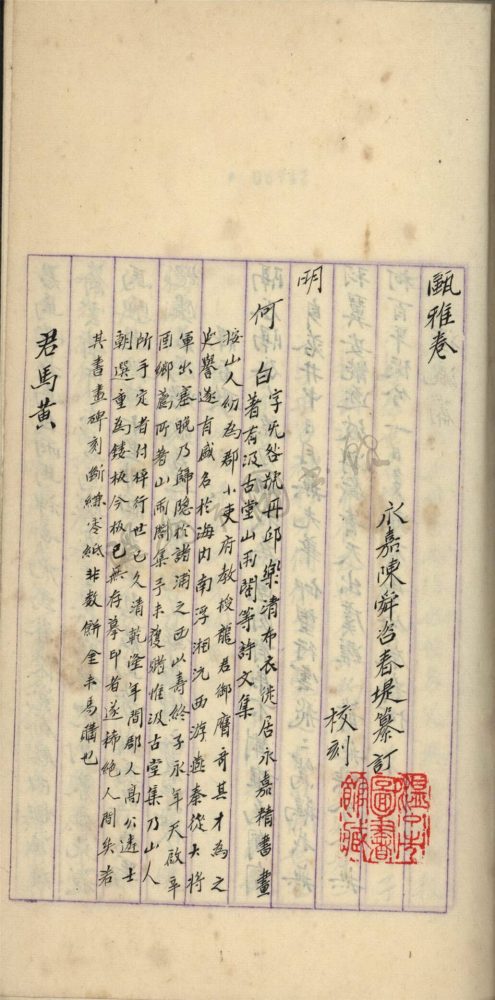 甌雅卷
永嘉陳舜咨春堤纂訂
校刻
明
何白
字无咎號丹邱樂清布衣徙居永嘉精書畫
著有汲古堂山雨閣等詩文集
按山人幼為郡小吏府教授龍君御膺奇其才為之
延譽遂有盛名於海內南浮湘沅西游燕秦從大將
軍出塞晚乃歸隱於諸浦之西以壽終子永年天啟辛
酉鄉薦所著山雨閣集予未獲覩惟汲古堂集乃山人
所手定者付梓行世已久清乾隆年間郡人高公遠士
朝選重為鋟板今板已無存摹印者遂稀絕人間矣若
其書畫碑刻斷縑零紙非數餅金未易購也
君馬黃
溫州市
圖書
館藏